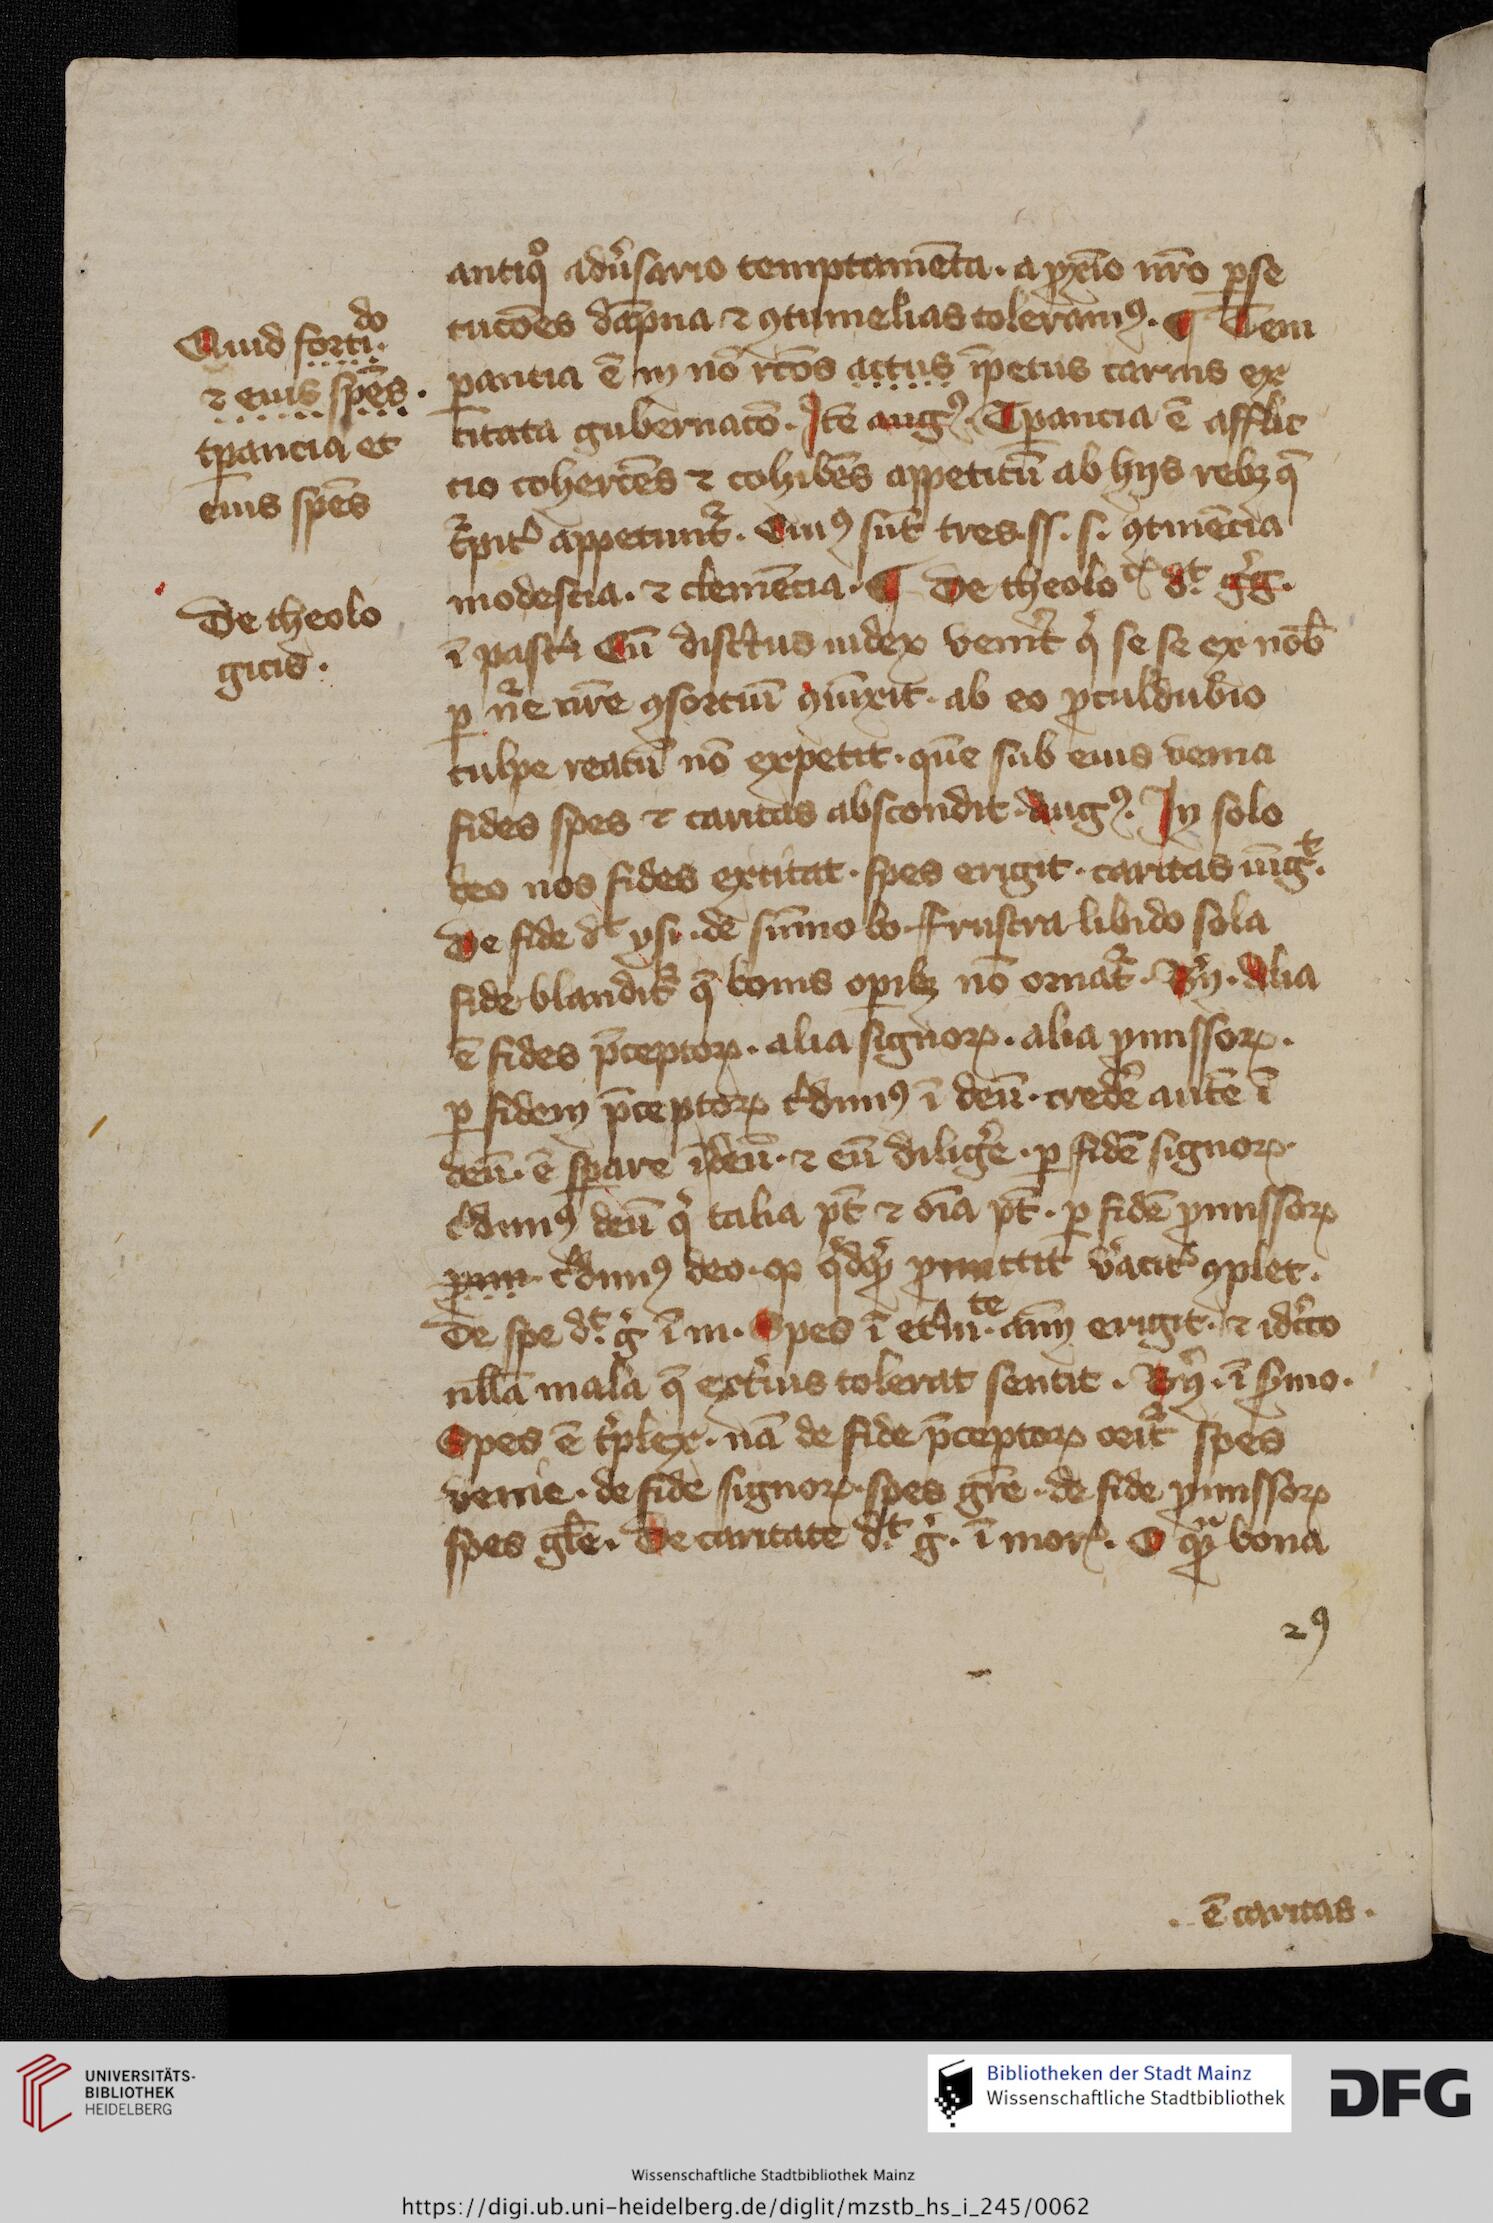 antiqo aduersario temptamēta. a pxīo nro pse
tucōes dāpna ⁊ ꝯtumelias toleramꝰ. ¶ Tem
pantia ē in nō rcōs actus īpetus carnis ex
citata gubernacō. Itē augꝰ. Tꝑancia ē afflic
tio cohercēs ⁊ cohibēs appetitū ab hijs rebꝫ q̄
appetunt. Cuiꝰ sūt tres. ss. s. ꝯtinēcia
modestia. ⁊ clemēcia. ¶ De theolo dt gg.
ī past Cū disctus iudex venit q se se ex nob
ꝑ nre ꝯsortiū ꝯiūxit. ab eo ꝓculdubio
culpe reatū nō expetit. quē sub eius venia
fides spes ⁊ caritas abscondit. Augꝰ. In solo
deo nos fides excitat. spes erigit. caritas iūgt.
De fide dt ysi. de sūmo bo. Frustra libido sola
fide blandit q̄ bonis opibꝫ nō ornat. Alia
ē fides p̄ceptoꝝ. alia signoꝝ. alia ꝓmissoꝝ.
ꝑ fidem p̄ceptoꝝ cdimꝰ ī deū. credē autē ī
deū. ē sꝑare ī deū. ⁊ eū diligē. ꝑ fidē signoꝝ.
cdimꝰ deū q talia pt ⁊ oīa pt. ꝑ fidē ꝓmissoꝝ
cdimꝰ deo. ꝓmittit vacit ꝯplet.
De spe dt. g ī m. Spes ī etnite. aīm erigit. ⁊ idcco
nlla mala q̄ exteius tolerat sentit. ī smo.
Spes ē tplex. nā de fide p̄ceptoꝝ orit spes
venie. de fide signoꝝ. spes grē. de fide ꝓmissoꝝ
spes glē. De caritate dt g. ī mor. O qm bona
Quid fortido
⁊ eius spēs.
tꝑancia et
eius spēs
De theolo
gicis.
ē caritas.
UNIVERSITÄTS-
BIBLIOTHEK
HEIDELBERG
Bibliotheken der Stadt Mainz
Wissenschaftliche Stadtbibliothek
DFG
Wissenschaftliche Stadtbibliothek Mainz
https://digi.ub.uni-heidelberg.de/diglit/mzstb_hs_i_245/0062